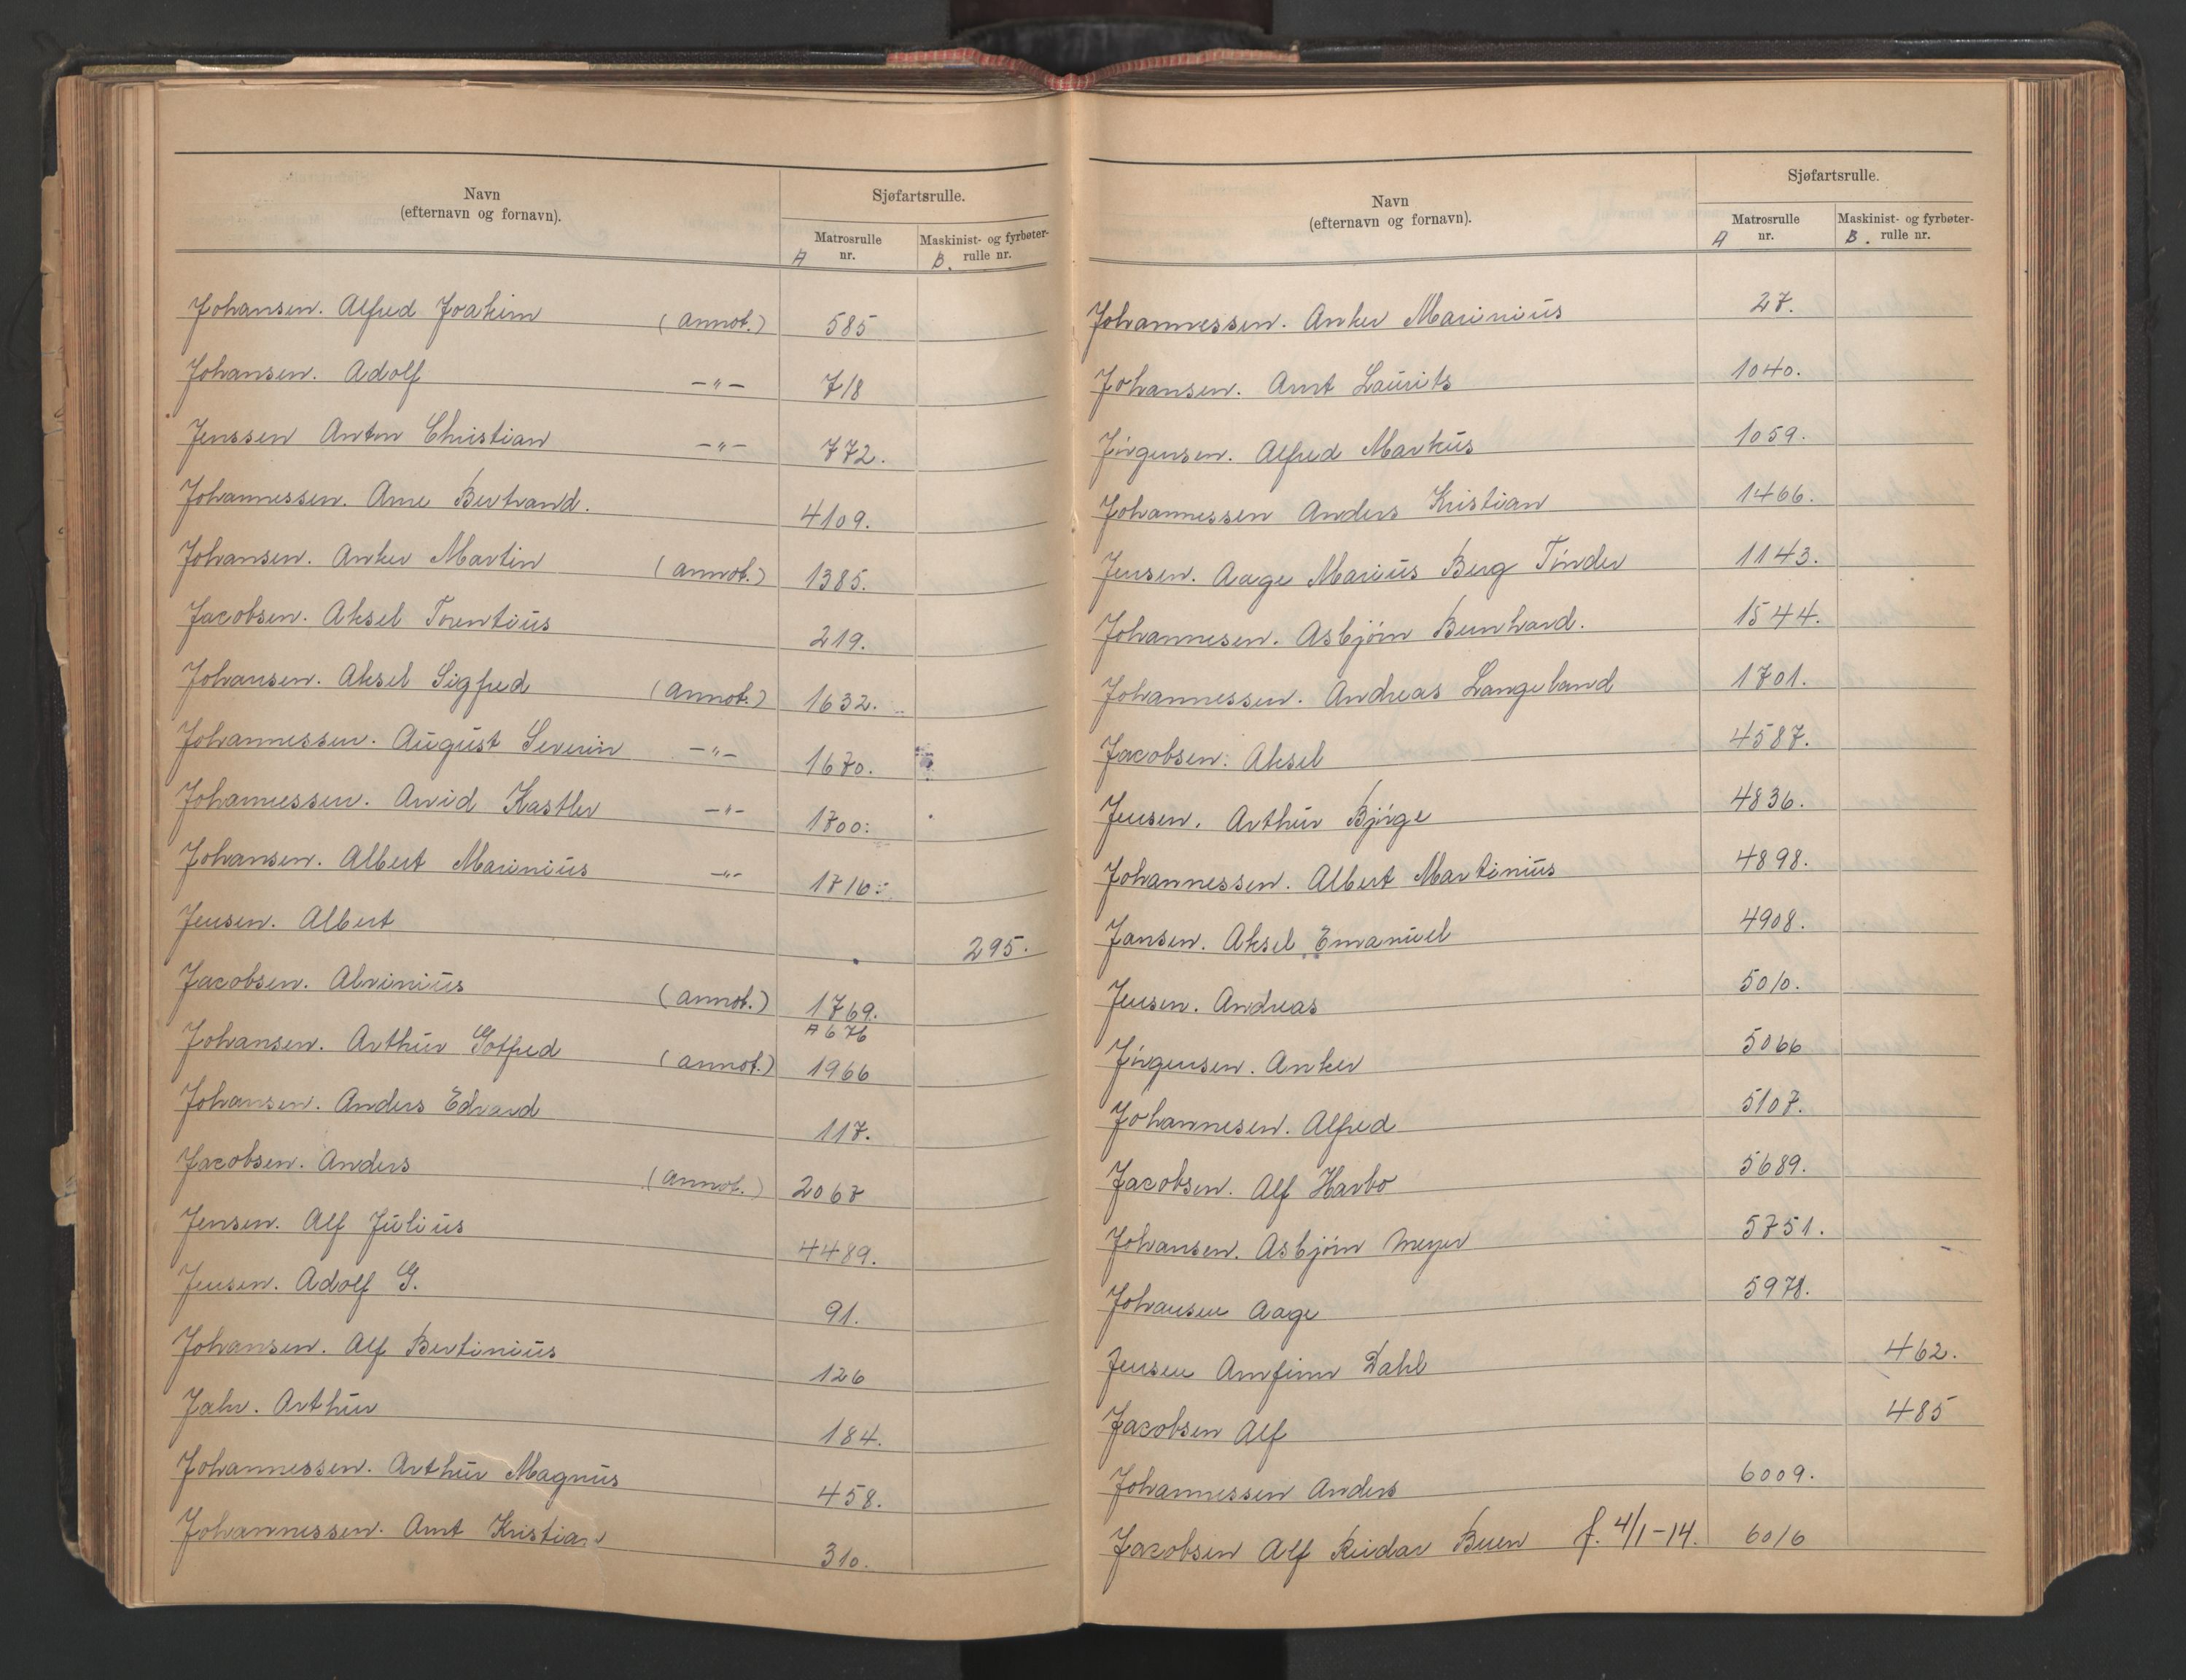 Navn
(efternavn og fornavn).
Sjøfartsrulle.
Matrosrulle nr. A
Maskinist- og fyrbøter-rulle nr. B.
Johansen. Alfred Joakim (annot.) 585
Johansen. Adolf —"— 718
Jenssen Anton Christian —"— 772.
Johannessen. Arne Bertrand. 4109.
Johansen. Anker Martin (annot.) 1385.
Jacobsen. Aksel Torentius 219.
Johansen. Aksel Sigfred (annot.) 1632.
Johannessen. August Severin —"— 1670.
Johannessen. Arvid Kastler —"— 1700.
Johansen. Albert Marinius —"— 1716.
Jensen. Albert 295.
Jacobsen. Alvinius (annot.) 1769.
A 676
Johansen. Arthur Gotfred (annot.) 1966
Johansen. Anders Edvard 117.
Jacobsen. Anders (annot.) 2067
Jensen. Alf Julius 4489.
Jensen. Adolf G. 91.
Johansen. Alf Bertinius 126
Jahr. Arthur 184.
Johannessen. Arthur Magnus 458.
Johannessen. Arnt Kristian 310.
Navn
(efternavn og fornavn).
Sjøfartsrulle.
Matrosrulle nr. A
Maskinist- og fyrbøter-rulle nr. B.
Johannessen. Anker Marinius 27.
Johansen. Arnt Laurits 1040.
Jörgensen. Alfred Markus 1059.
Johannessen Anders Kristian 1466.
Jensen. Aage Marius Berg Tönder 1143.
Johannesen. Asbjörn Bernhard. 1544.
Johannessen. Andreas Langeland 1701.
Jacobsen. Aksel 4587.
Jensen. Arthur Bjórge 4836.
Johannessen. Albert Martinius 4898.
Jansen. Aksel Emanuel 4908.
Jensen. Andreas 5010.
Jörgensen. Anker 5066
Johannesen. Alfred 5107.
Jacobsen. Alf Harbo 5689.
Johansen. Asbjörn Meyer 5751.
Johansen Aage 5978.
Jensen Arnfinn Dahl 462.
Jacobsen Alf 485
Johannessen Anders 6009.
Jacobsen Alf Reidar Buen f. 4/1-14. 6016